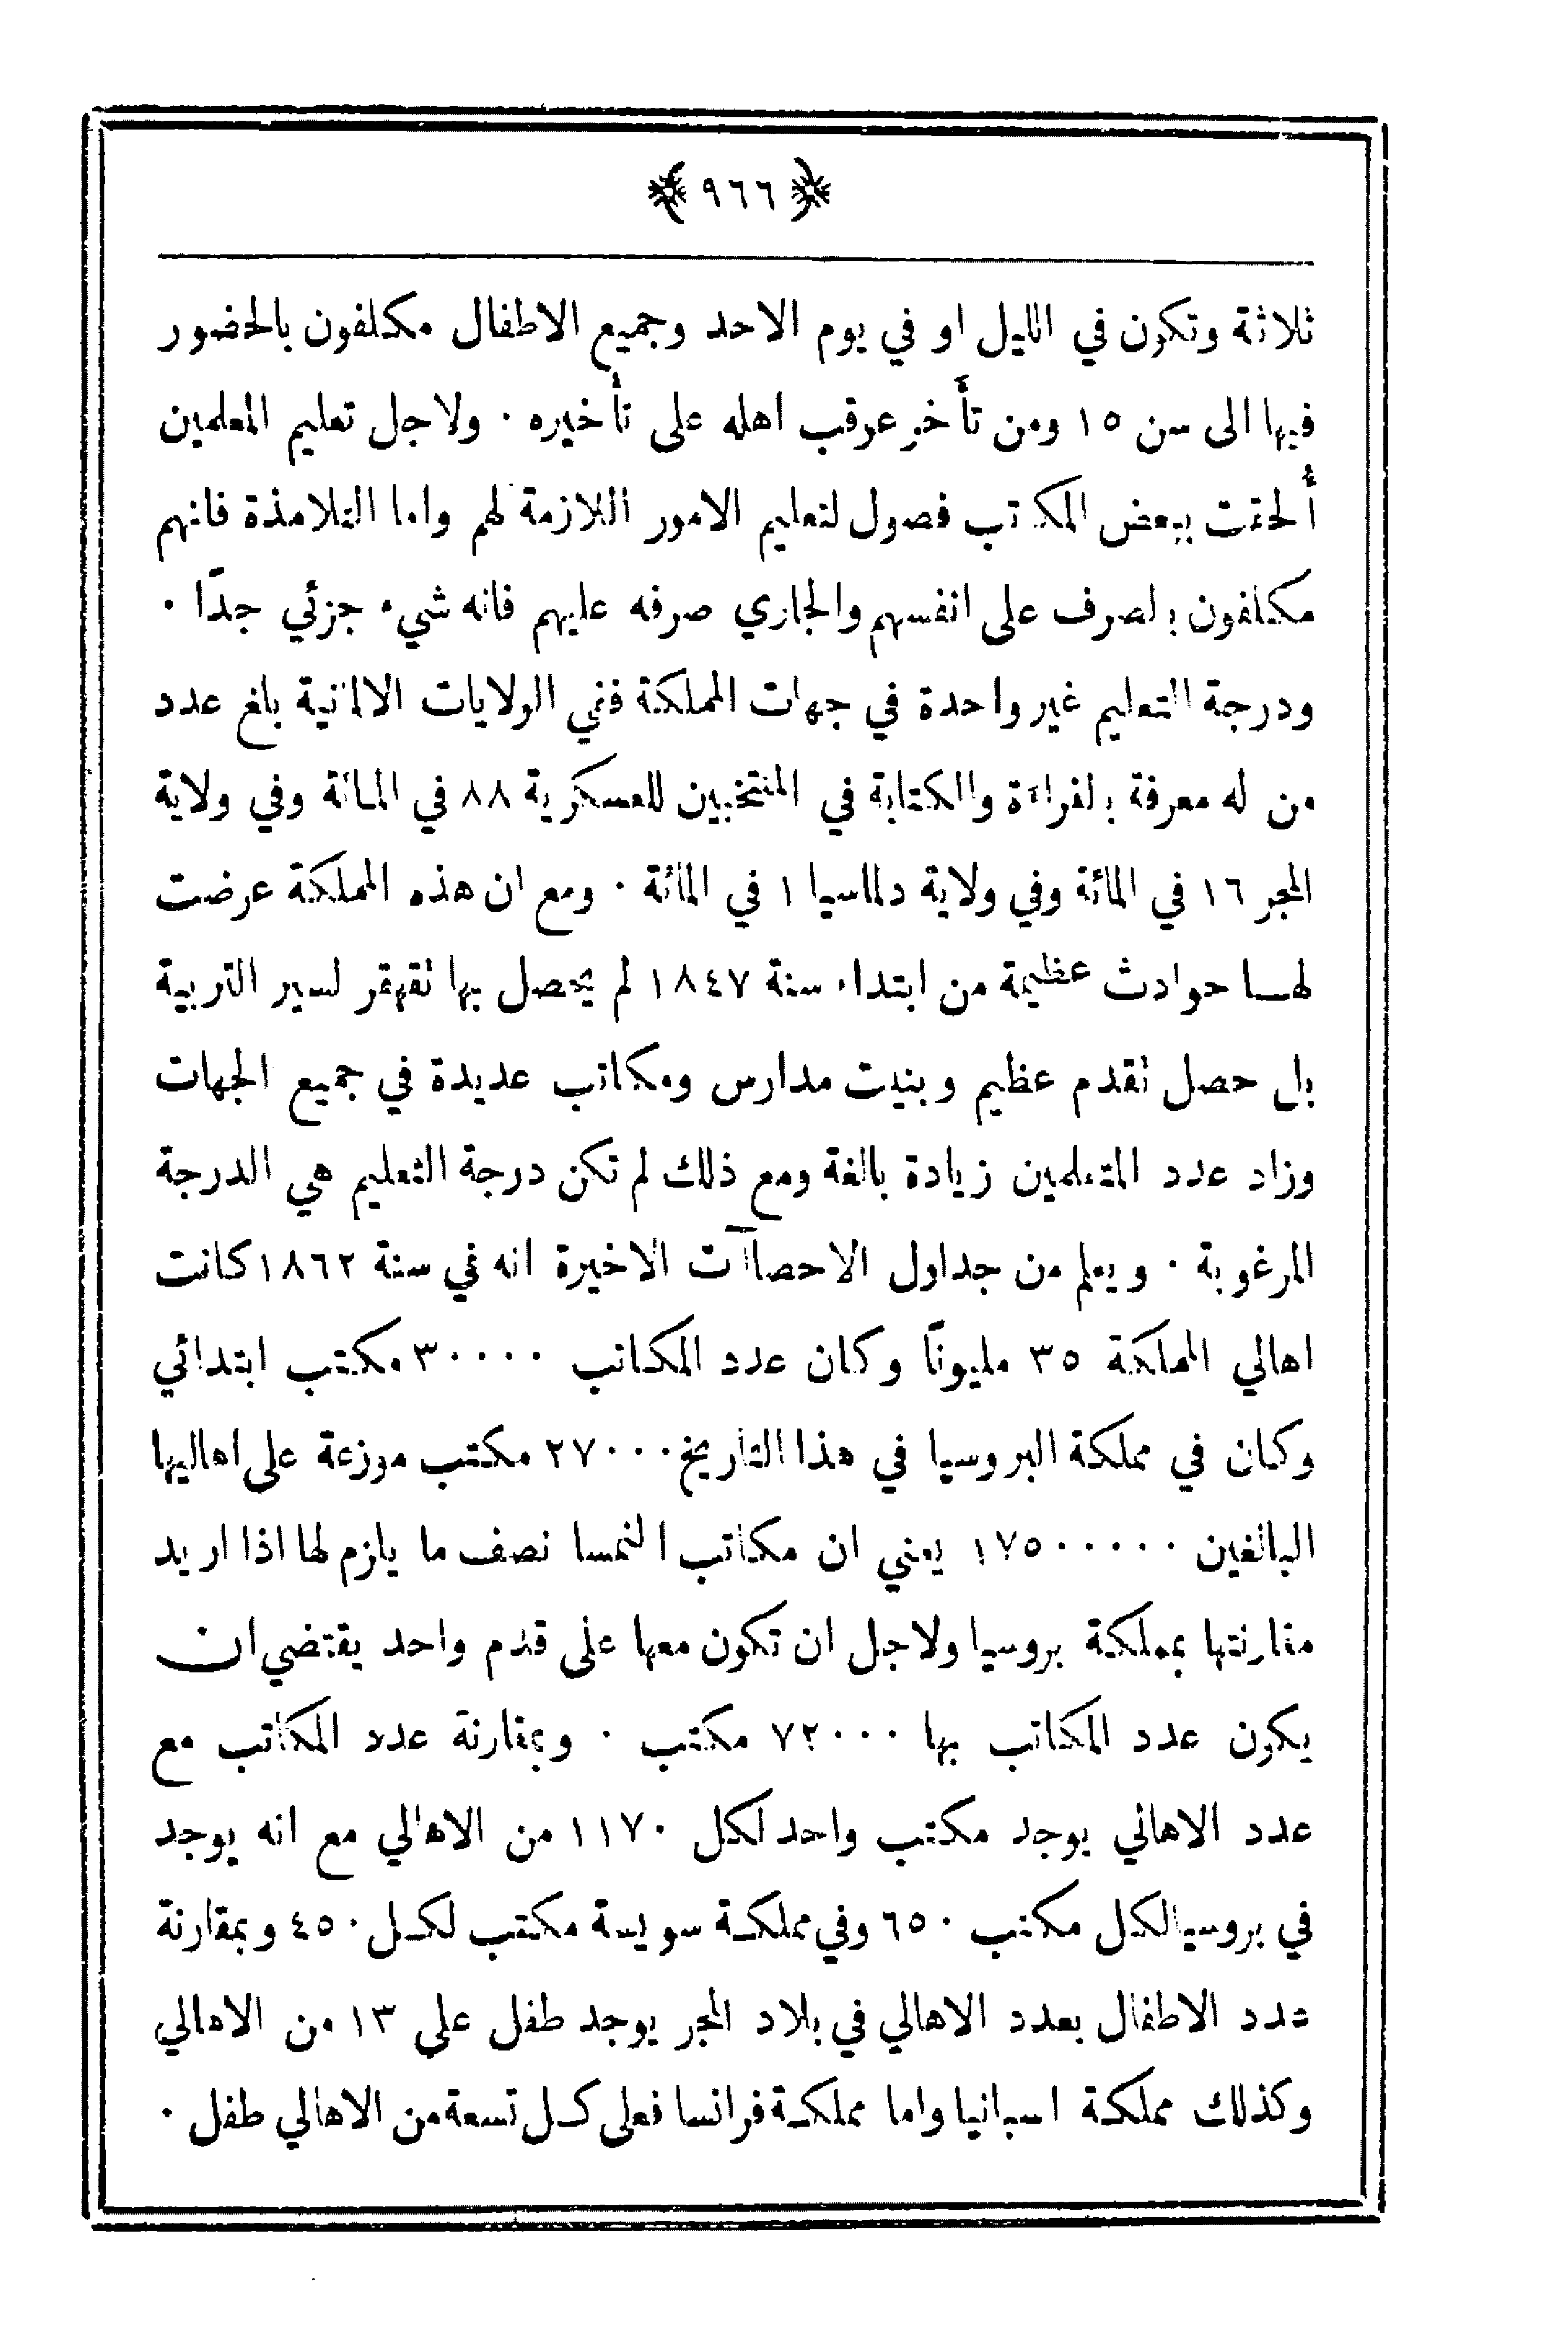 ﴿ ٩٦٦ ﴾
ثلاثة وتكون في الليل او في يوم الاحد وجميع الاطفال مكلفون بالحضور
فيها الى سن ١٥ ومن تأخر عوقب اهله على تأخيره ٠ ولاجل تعليم المعلمين
أُلحقت ببعض المكاتب فصول لتعليم الامور اللازمة لهم واما التلامذة فانهم
مكلفون بالصرف على انفسهم والجاري صرفه عليهم فانه شيء جزئي جدًا ٠
ودرجة التعليم غير واحدة في جهات المملكة ففي الولايات الالمانية بلغ عدد
من له معرفة بالقراءة والكتابة في المنتخبين للعسكرية ٨٨ في المائة وفي ولاية
المجر ١٦ في المائة وفي ولاية دلماسيا ١ في المائة ٠ ومع ان هذه المملكة عرضت
لهـا حوادث عظيمة من ابتداء سنة ١٨٤٧ لم يحصل بها تقهقر لسير التربية
بل حصل تقدم عظيم وبنيت مدارس ومكاتب عديدة في جميع الجهات
وزاد عدد المتعلمين زيادة بالغة ومع ذلك لم تكن درجة التعليم هي الدرجة
المرغوبة ٠ ويعلم من جداول الاحصاآت الاخيرة انه في سنة ١٨٦٢ كانت
اهالي المملكة ٣٥ مليونًا وكان عدد المكاتب ٣٠٠٠٠ مكتب ابتدائي
وكان في مملكة البروسيا في هذا التاريخ ٢٧٠٠٠ مكتب موزعة على اهاليها
البالغين ١٧٥٠٠٠٠٠ يعني ان مكاتب النمسا نصف ما يلزم لها اذا اريد
مقارنتها بمملكة بروسيا ولاجل ان تكون معها على قدم واحد يقتضي ان
يكون عدد المكاتب بها ٧٢٠٠٠ مكتب ٠ وبمقارنة عدد المكاتب مع
عدد الاهالي يوجد مكتب واحد لكل ١١٧٠ من الاهالي مع انه يوجد
في بروسيا لكل مكتب ٦٥٠ وفي مملكـة سويسة مكتب لكـل ٤٥٠ وبمقارنة
عدد الاطفال بعدد الاهالي في بلاد المجر يوجد طفل على ١٣ من الاهالي
وكذلك مملكـة اسبانيا واما مملكـة فرانسا فعلى كـل تسعة من الاهالي طفل ٠